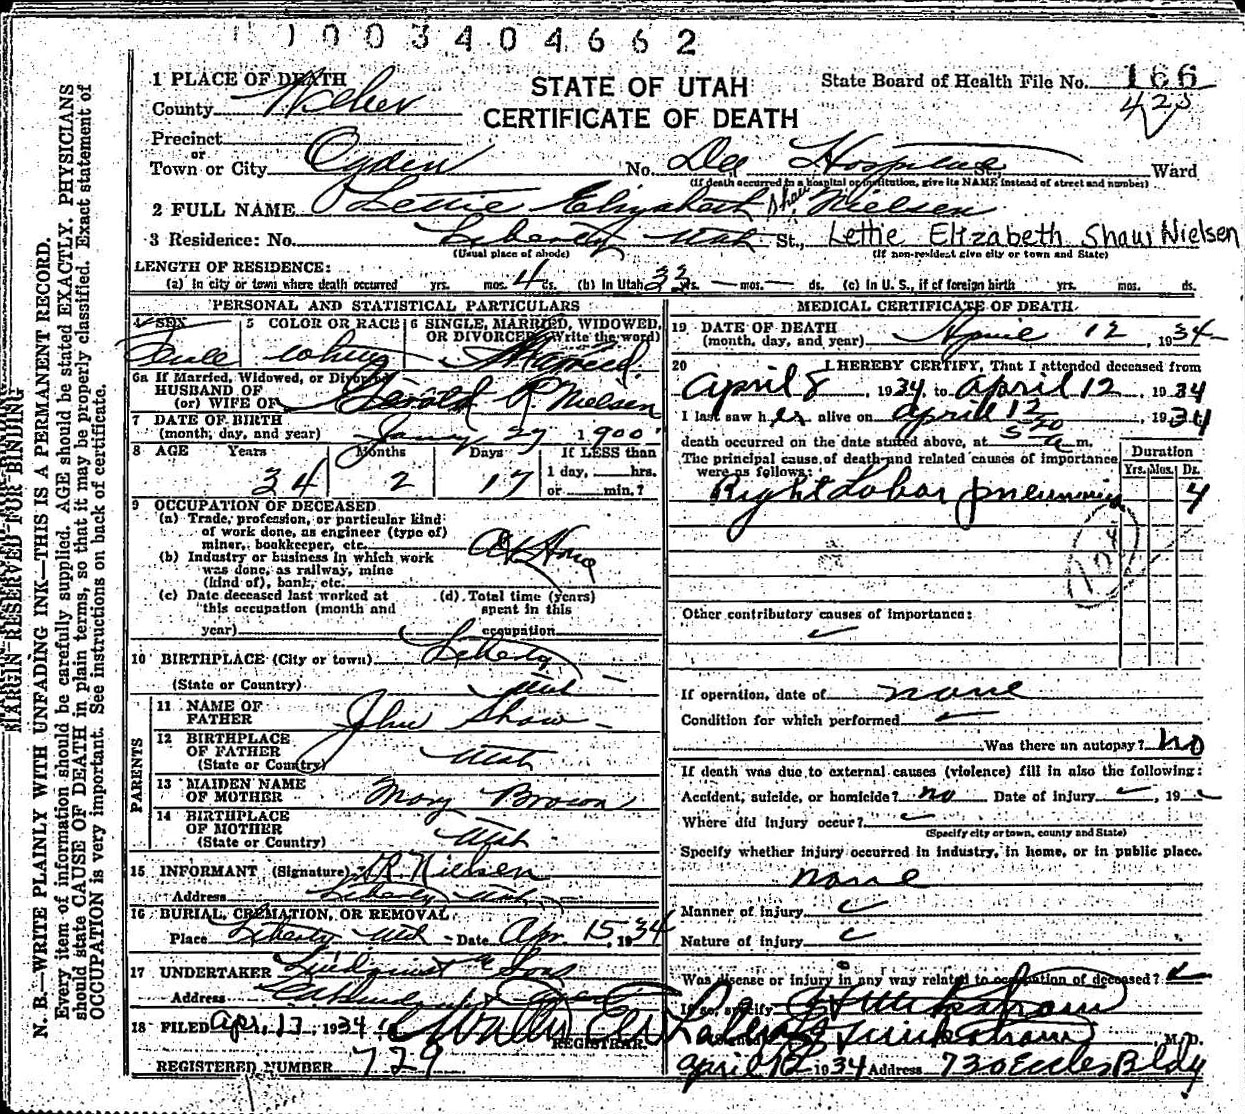 1003404662
1 PLACE OF DEATH
County Weber
STATE OF UTAH
CERTIFICATE OF DEATH
State Board of Health File No. 166
425
Precinct
or
Town or City Ogden No. Dee Hospital St., Ward
(If death occurred in a hospital or institution, give its NAME instead of street and number)
2 FULL NAME Lettie Elizabeth Shaw Nielsen
3 Residence: No. Liberty Utah St., Lettie Elizabeth Shaw Nielsen
(Usual place of abode) (If non-resident give city or town and State)
LENGTH OF RESIDENCE:
(a) In city or town where death occurred yrs. mos. 4 ds. (b) In Utah 33 yrs. — mos. — ds. (c) In U. S., if of foreign birth yrs. mos. ds.
PERSONAL AND STATISTICAL PARTICULARS
4 SEX 5 COLOR OR RACE 6 SINGLE, MARRIED, WIDOWED,
OR DIVORCED (Write the word)
White Married
6a If Married, Widowed, or Divorced
HUSBAND OF
(or) WIFE OF Gerald R. Nielsen
7 DATE OF BIRTH
(month, day, and year) 27 1900
8 AGE Years Months Days If LESS than
1 day, hrs.
or min.?
34 2 17
9 OCCUPATION OF DECEASED
(a) Trade, profession, or particular kind
of work done, as engineer (type of)
miner, bookkeeper, etc. At Home
(b) Industry or business in which work
was done, as railway, mine
(kind of), bank, etc.
(c) Date deceased last worked at
this occupation (month and
year)
(d) Total time (years)
spent in this
occupation
10 BIRTHPLACE (City or town) Liberty
(State or Country) Utah
PARENTS
11 NAME OF
FATHER John Shaw
12 BIRTHPLACE
OF FATHER
(State or Country) Utah
13 MAIDEN NAME
OF MOTHER Mary Brown
14 BIRTHPLACE
OF MOTHER
(State or Country) Utah
15 INFORMANT (Signature) R. Nielsen
Address Liberty Utah
16 BURIAL, CREMATION, OR REMOVAL
Place Liberty Utah Date Apr. 15, 1934
17 UNDERTAKER Lindquist & Sons
Address Ogden
18 FILED Apr. 17, 1934
REGISTRAR.
REGISTERED NUMBER 729
MEDICAL CERTIFICATE OF DEATH
19 DATE OF DEATH
(month, day, and year) April 12, 1934
20 I HEREBY CERTIFY, That I attended deceased from
April 8, 1934 to April 12, 1934
I last saw her alive on April 12, 1934
death occurred on the date stated above, at 5 20 a m.
The principal cause of death and related causes of importance
were as follows:
Duration
Yrs. Mos. Ds.
Right Lobar pneumonia 4
Other contributory causes of importance:
If operation, date of none
Condition for which performed
Was there an autopsy? no
If death was due to external causes (violence) fill in also the following:
Accident, suicide, or homicide? no Date of injury , 19
Where did injury occur?
(Specify city or town, county and State)
Specify whether injury occurred in industry, in home, or in public place.
none
Manner of injury
Nature of injury
Was disease or injury in any way related to occupation of deceased?
If so, specify
M. D.
April 12 1934 Address 730 Eccles Bldg
MARGIN RESERVED FOR BINDING
N. B.—WRITE PLAINLY WITH UNFADING INK—THIS IS A PERMANENT RECORD.
Every item of information should be carefully supplied. AGE should be stated EXACTLY. PHYSICIANS
should state CAUSE OF DEATH in plain terms, so that it may be properly classified. Exact statement of
OCCUPATION is very important. See instructions on back of certificate.